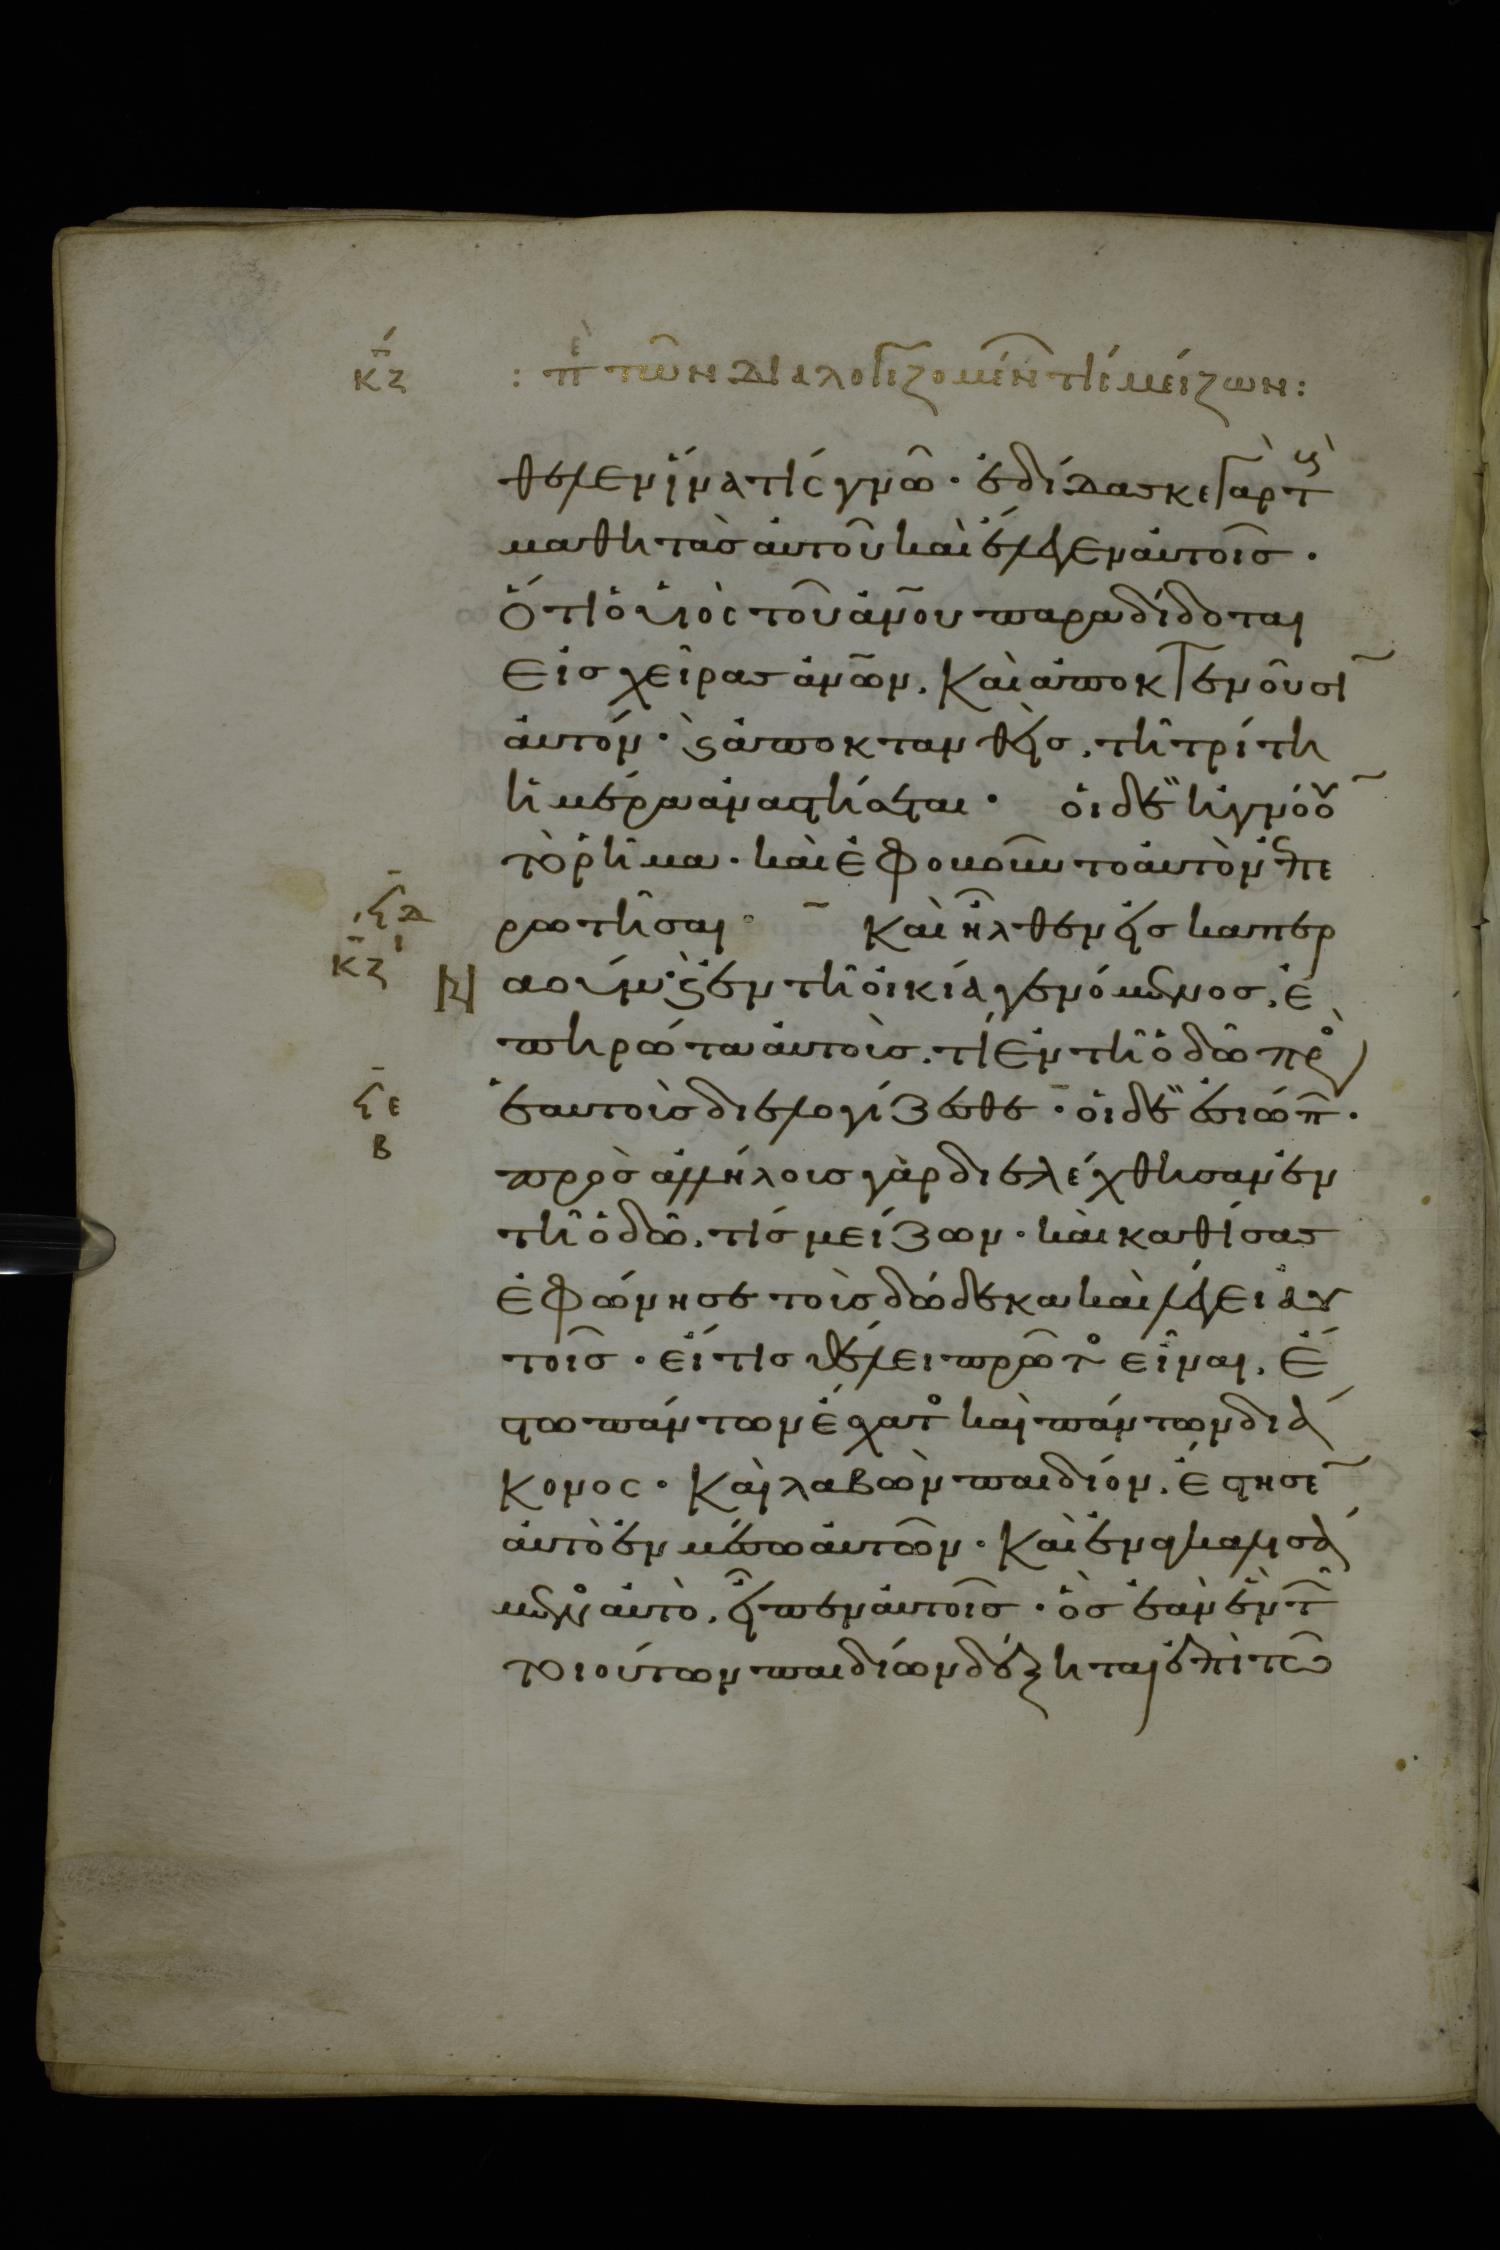 κζ : πε τῶν διαλογιζομένων τίς μείζων :
θελεν ἵνα τίς γνῶ · ἐδίδασκε γὰρ τοὺς
μαθητὰς αὐτοῦ καὶ ἔλεγεν αὐτοῖς ·
ὅτι ὁ υἱὸς τοῦ ἀνου παραδίδοται
εἰς χεῖρας ἀνων. καὶ ἀποκτενοῦσιν
αὐτόν · καὶ ἀποκτανθεὶς, τῆ τρίτη
ἡμέρα ἀναστήσεται · οἱ δὲ ἠγνόουν
τὸ ῥῆμα · καὶ ἐφοβοῦντο αὐτὸν ἐπε
ϟδ ρωτῆσαι · Καὶ ἦλθεν εἰς καπερ
κζ ι ναούμ · καὶ ἐν τῆ οἰκία γενόμενος, ἐ
πηρώτα αὐτοὺς. τί ἐν τῆ ὁδῶ πρὸς
ϟε ἑαυτοὺς διελογίζεσθε · οἱ δὲ ἐσιώπων ·
β πρὸς ἀλλήλους γὰρ διελέχθησαν ἐν
τῆ ὁδῶ, τίς μείζων · καὶ καθίσας
ἐφώνησε τοὺς δώδεκα καὶ λέγει αὐ
τοῖς · εἴ τις θέλει πρῶτος εἶναι, ἔ
σται πάντων ἔσχατος καὶ πάντων διά
κονος · Καὶ λαβὼν παιδίον, ἔστησεν
αὐτὸ ἐν μέσω αὐτῶν · Καὶ ἐναγκαλισά
μενος αὐτὸ, εἶπεν αὐτοῖς · ὃς ἐὰν ἓν τῶν
τοιούτων παιδίων δέξηται ἐπὶ τῶ